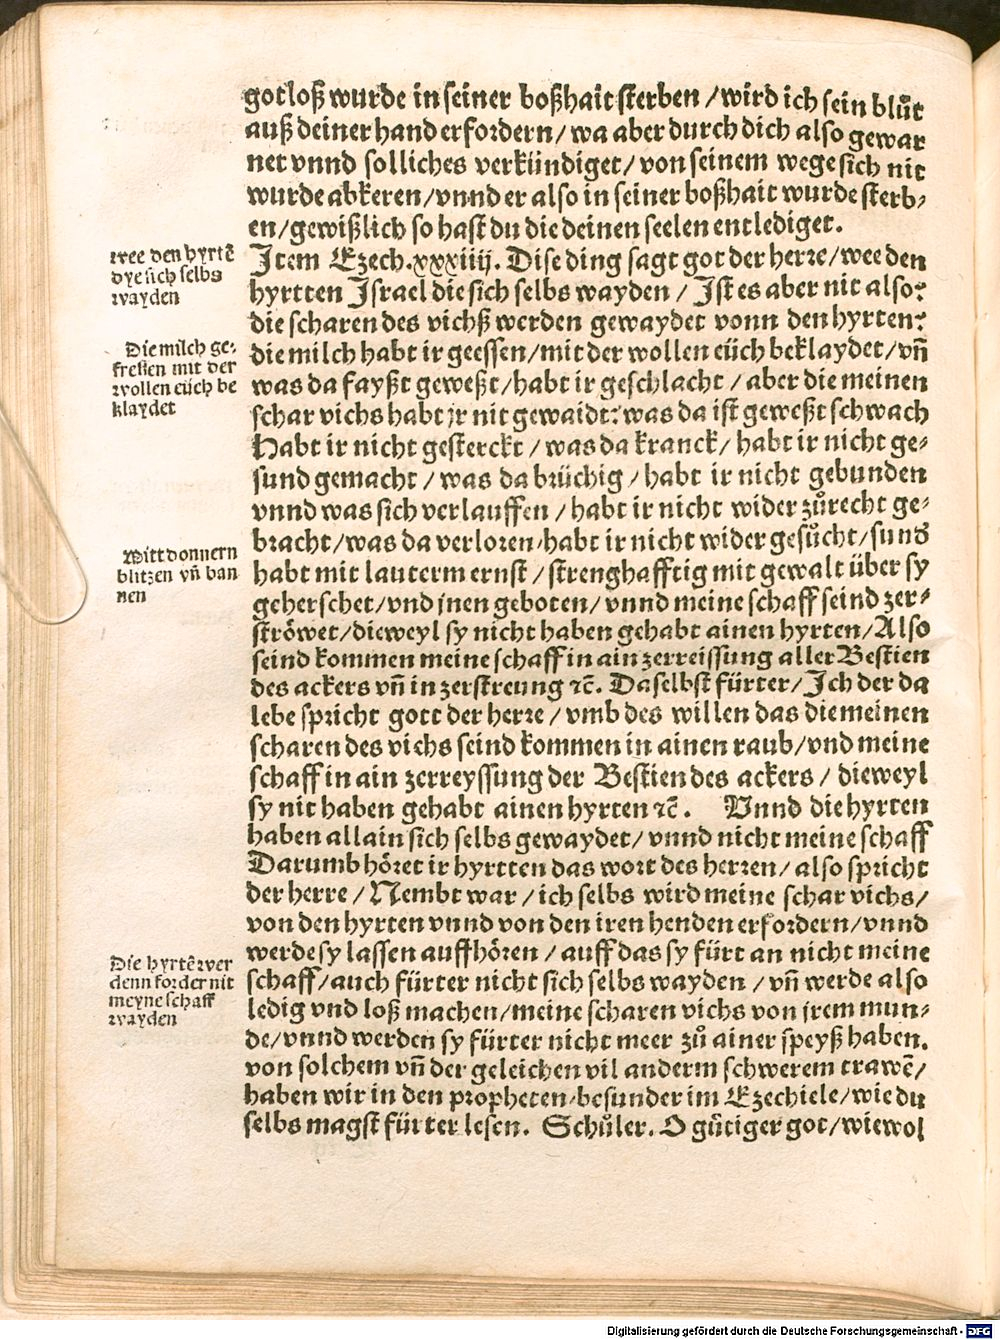 gotloß wurde in seiner boßhait sterben / wird ich sein blůt
auß deiner hand erfordern / wa aber durch dich also gewar
net vnnd solliches verkündiget / von seinem wege sich nit
wurde abkeren / vnnd er also in seiner boßhait wurde sterb⸗
en / gewißlich so hast du die deinen seelen entlediget.
wee den hyrtē
dye sich selbs
wayden
Item Ezech.xxxiiij. Dise ding sagt got der herre / wee den
hyrtten Israel die sich selbs wayden / Ist es aber nit also?
die scharen des vichß werden gewaydet vonn den hyrten?
Die milch ge⸗
fressen mit der
wollen eüch be
klaydet
die milch habt ir geessen / mit der wollen eüch beklaydet / vñ
was da fayßt geweßt / habt ir geschlacht / aber die meinen
schar vichs habt jr nit gewaidt: was da ist geweßt schwach
Habt ir nicht gesterckt / was da kranck / habt ir nicht ge⸗
sund gemacht / was da brüchig / habt ir nicht gebunden
vnnd was sich verlauffen / habt ir nicht wider zůrecht ge⸗
bracht / was da verloren / habt ir nicht wider gesůcht / sund
Mitt donnern
blitzen vñ ban
nen
habt mit lauterm ernst / strenghafftig mit gewalt über sy
geherschet / vnd jnen geboten / vnnd meine schaff seind zer⸗
ströwet / dieweyl sy nicht haben gehabt ainen hyrten / Also
seind kommen meine schaff in ain zerreissung aller Bestien
des ackers vñ in zerstreung ꝛc̄. Daselbst fürter / Ich der da
lebe spricht gott der herre / vmb des willen das die meinen
scharen des vichs seind kommen in ainen raub / vnd meine
schaff in ain zerreyssung der Bestien des ackers / dieweyl
sy nit haben gehabt ainen hyrten ꝛc̄. Vnnd die hyrten
haben allain sich selbs gewaydet / vnnd nicht meine schaff
Darumb höret ir hyrtten das wort des herren / also spricht
der herre / Nembt war / ich selbs wird meine schar vichs /
von den hyrten vnnd von den iren henden erfordern / vnnd
Die hyrtē wer
denn forder nit
meyne schaff
wayden
werde sy lassen auffhören / auff das sy fürt an nicht meine
schaff / auch fürter nicht sich selbs wayden / vñ werde also
ledig vnd loß machen / meine scharen vichs von jrem mun⸗
de / vnnd werden sy fürter nicht meer zů ainer speyß haben.
von solchem vñ der geleichen vil anderm schwerem trawē /
haben wir in den propheten / besunder im Ezechiele / wie du
selbs magst fürter lesen. Schůler. O gütiger got / wiewol
Digitalisierung gefördert durch die Deutsche Forschungsgemeinschaft - DFG